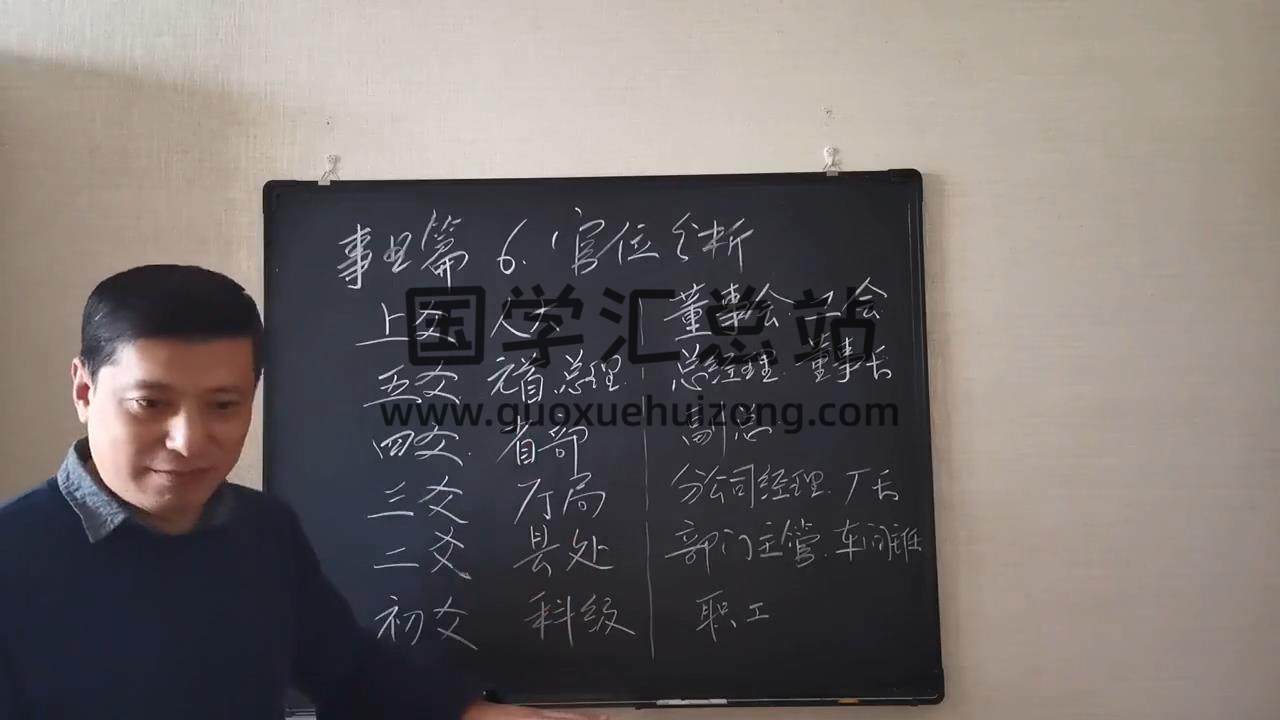 事业篇 6.官位分析
上爻 人大 董事会.工会
国学汇总站
五爻. 元首.总理. 总经理.董事长
www.guoxuehuizong.com
四爻. 省部 副总
三爻 厅局 分公司经理.厂长
二爻 县处 部门主管.车间主任
初爻 科级 职工